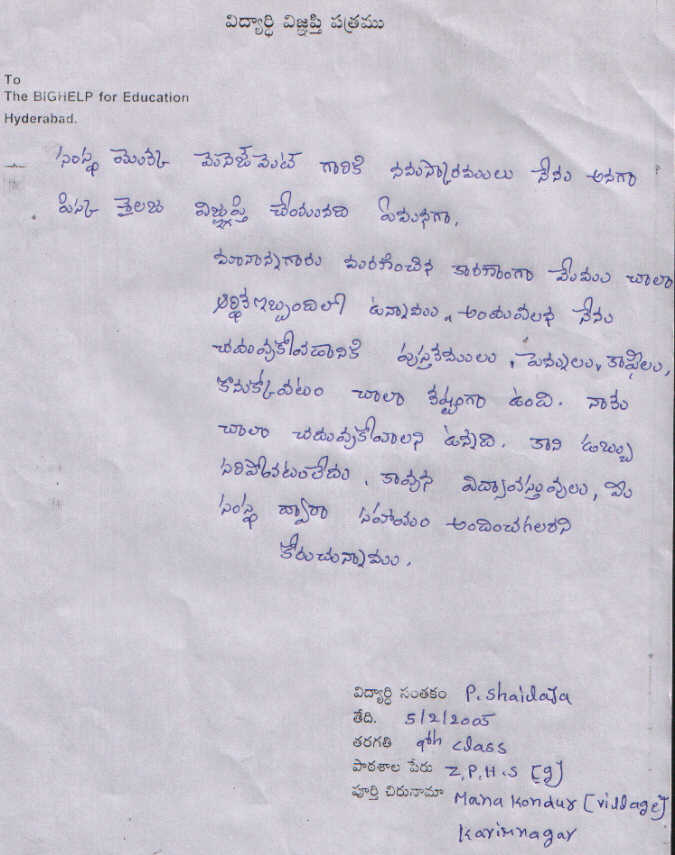 విద్యార్థి విజ్ఞప్తి పత్రము
To
The BIGHELP for Education
Hyderabad.
సంస్థ యొక్క మెనెజ్‌మెంట్ గారికి నమస్కారములు నేను అనగా
విజ్ఞప్తి చేయునది ఏమనగా,
మానాన్నగారు మరణించిన కారణంగా మేము చాలా
ఆర్థిక ఇబ్బందిలో ఉన్నాము. అందువలన నేను
చదువుకోవడానికి పుస్తకములు, పెన్నులు, కాపీలు,
కొనుక్కోవటం చాలా కష్టంగా ఉంది. నాకు
చాలా చదువుకోవాలని ఉన్నది. కాని డబ్బు
సరిపోవటంలేదు. కావున విద్యావస్తువులు, మీ
సంస్థ ద్వారా సహాయం అందించగలరని
కోరుచున్నాము.
విద్యార్థి సంతకం P. Shailaja
తేది. 5/2/2005
తరగతి 9th class
పాఠశాల పేరు Z.P.H.S [g]
పూర్తి చిరునామా Mana Kondur [village]
Karimnagar